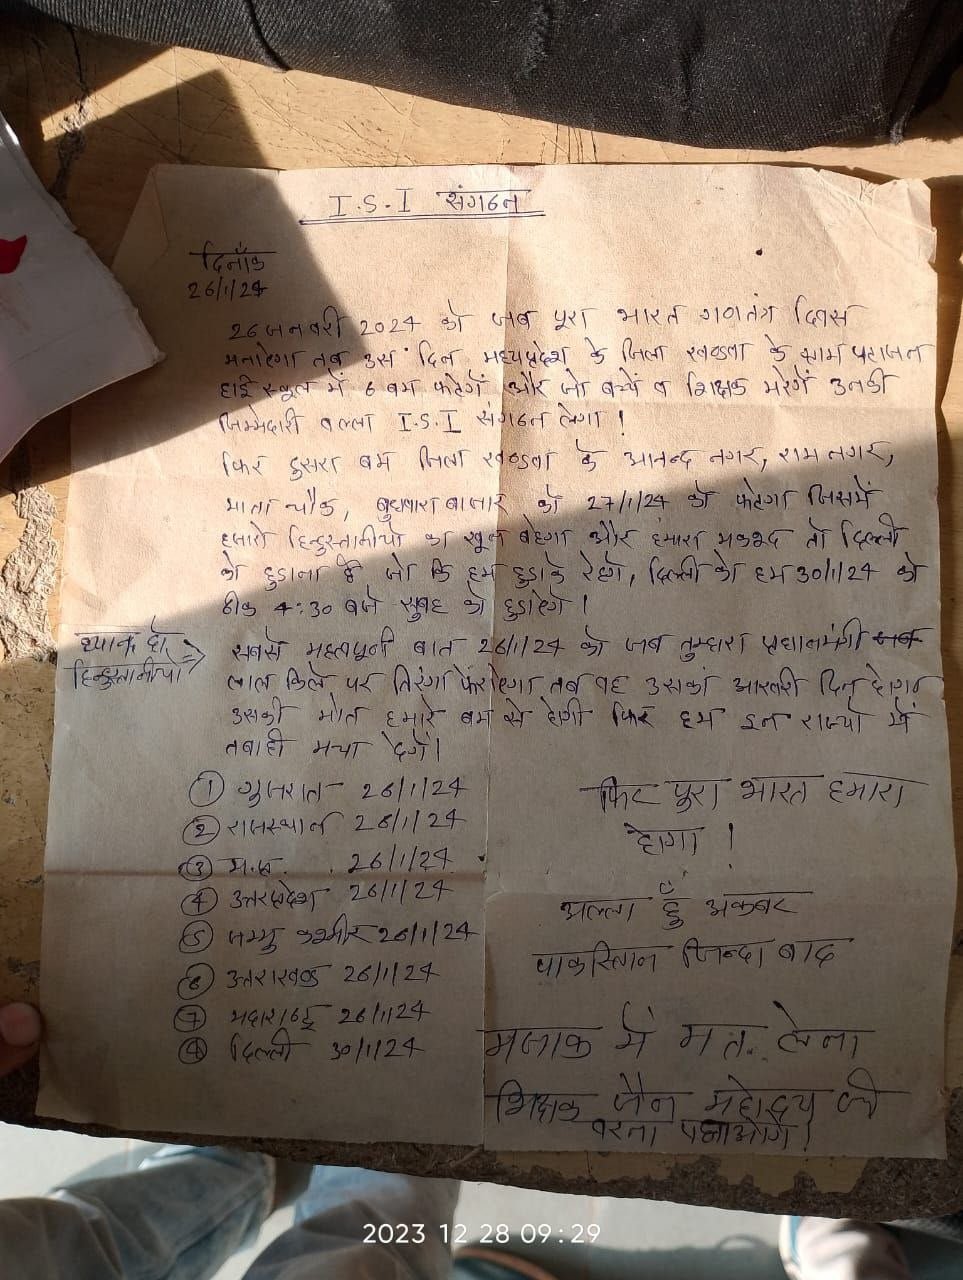 I.S.I संगठन
दिनाँक
26/1/24
26 जनवरी 2024 को जब पूरा भारत गणतंत्र दिवस
मनाऐगा तब उस दिन मध्यप्रदेश के जिला खण्डवा के ग्राम
हाई स्कूल में 6 बम फटेगें और जो बच्चें व शिक्षक मरेगें उनकी
जिम्मेदारी I.S.I संगठन लेगा !
फिर दुसरा बम जिला खण्डवा के आनन्द नगर, राम नगर,
माता चौक, बुधवारा बाजार को 27/1/24 को फटेगा जिसमें
हजारो हिन्दुस्तानीयो का खून बहेगा और हमारा मकसद तो दिल्ली
को छुडाना है जो कि हम छुडाके रहेगे, दिल्ली को हम 30/1/24 को
ठीक 4:30 बजे सुबह को छुडाऐगे !
ध्यान दो
हिन्दुस्तानीयो ⇒
सबसे महत्वपूर्ण बात 26/1/24 को जब तुम्हारा प्रधानमंत्री जब
लाल किले पर तिरंगा फेराऐगा तब वह उसका आखरी दिन होगा
उसकी मौत हमारे बम से होगी फिर हम इन राज्यो में
तबाही मचा देगें।
① गुजरात 26/1/24
② राजस्थान 26/1/24
③ म.प्र. 26/1/24
④ उत्तरप्रदेश 26/1/24
⑤ जम्मु कश्मीर 26/1/24
⑥ उत्तराखण्ड 26/1/24
⑦ 26/1/24
दिल्ली 30/1/24
फिर पूरा भारत हमारा
होगा !
अल्ला हुँ अकबर
पाकिस्तान जिन्दा बाद
मजाक में मत लेना
शिक्षक जैन महोदय जी
वरना
2023 12 28 09:29